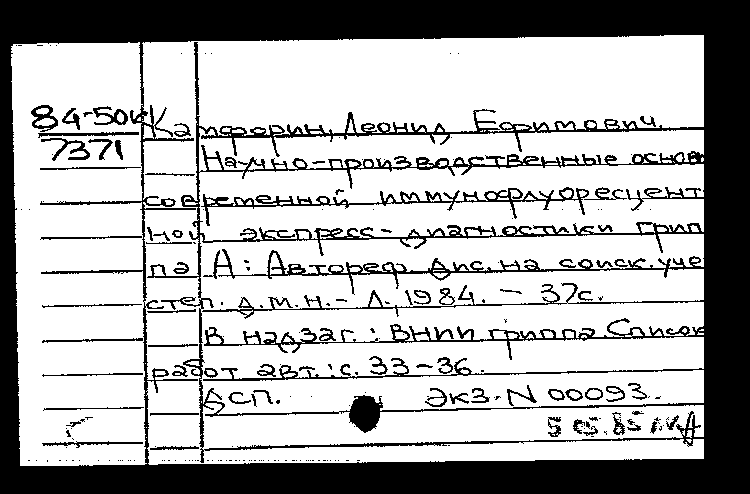 84-50к
7371
Камфорин, Леонид Ефимович.
Научно-производственные основ
современной иммунофлуоресцент
ной экспресс-диагностики грип
па А: Автореф. дис. на соиск. уче
степ. д.м.н. - Л., 1984. - 37с.
В надзаг.: ВНИИ гриппа. Список
работ авт.: с. 33-36.
Дсп. Экз. N 00093.
5 05.85